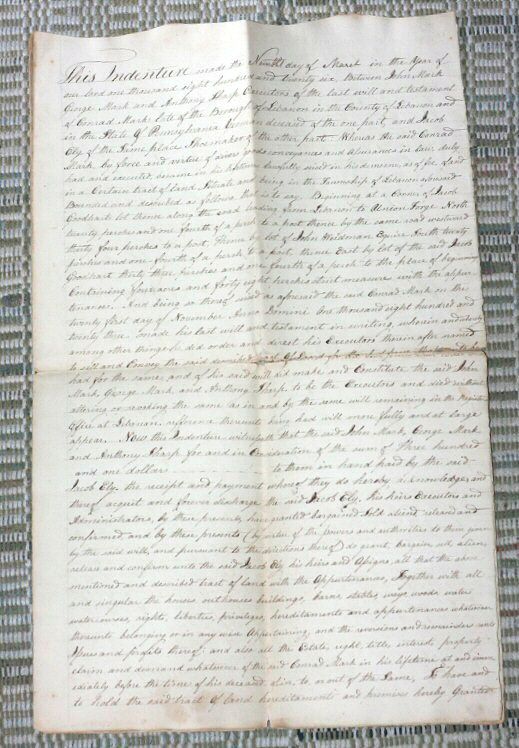 This Indenture made the Ninth day of March in the Year of
our Lord one thousand eight hundred and twenty six Between John Mark
George Mark and Anthony Sharp Executors of the last will and testament
of Conrad Mark late of the Borough of Lebanon in the County of Lebanon and
in the State of Pennsylvania deceased of the one part, and Jacob
Ely of the same place Shoemaker of the other part. Whereas the said Conrad
Mark by force and virtue of divers good conveyances and assurances in law duly
had and executed, became in his lifetime lawfully seized in his demesne, as of fee of and
in a Certain tract of Land, Situate and being in the Township of Lebanon aforesaid
Bounded and described as follows that is to say. Beginning at a Corner of Jacob
Goodhart lot thence along the road leading from Lebanon to Union Forge North
twenty perches and one fourth of a perch to a post thence by the same road westward
thirty four perches to a post, thence by lot of John Weidman Esquire South twenty
perches and one fourth of a perch to a post, thence East by lot of the said Jacob
Goodhart thirty three perches and one fourth of a perch to the place of beginning
Containing four acres and forty eight perches strict measure with the appur
tenances. And being so thereof seized as aforesaid the said Conrad Mark on the
twenty first day of November Anno Domini One thousand eight hundred and
twenty three made his last will and testament in writing, wherein and whereby
among other things he did order and direct his Executors therein after named
to sell and Convey the said described
had for the same, and of his said will did make and Constitute the said John
Mark, George Mark, and Anthony Sharp to be the Executors and died without
altering or revoking the same as in and by the same will remaining in the Register
office at Lebanon, reference thereunto being had will more fully and at large
appear. Now this Indenture witnesseth that the said John Mark, George Mark
and Anthony Sharp for and in Consideration of the sum of Three hundred
and one dollars to them in hand paid by the said
Jacob Ely, the receipt and payment whereof they do hereby acknowledge and
thereof acquit and forever discharge the said Jacob Ely, his heirs Executors and
Administrators, by these presents, have granted bargained sold aliened released and
confirmed, and by these presents (by virtue of the powers and authorities to them given
by the said will, and pursuant to the directions thereof) do grant, bargain sell, alien
release and confirm unto the said Jacob Ely his heirs and Assigns, all that the above
mentioned and described tract of Land with the Appurtenances, Together with all
and singular the houses outhouses buildings, barns stables ways woods water
watercourses, rights, liberties, privileges, hereditaments and appurtenances whatsoever
thereunto belonging or in any wise Appertaining, and the reversions and remainders rents
issues and profits thereof; and also all the Estate, right, title, interest, property
claim and demand whatsoever of the said Conrad Mark in his lifetime at and imm
ediately before the time of his decease of in to or out of the Same, To have and
to hold the said tract of Land hereditaments and premises hereby Granted